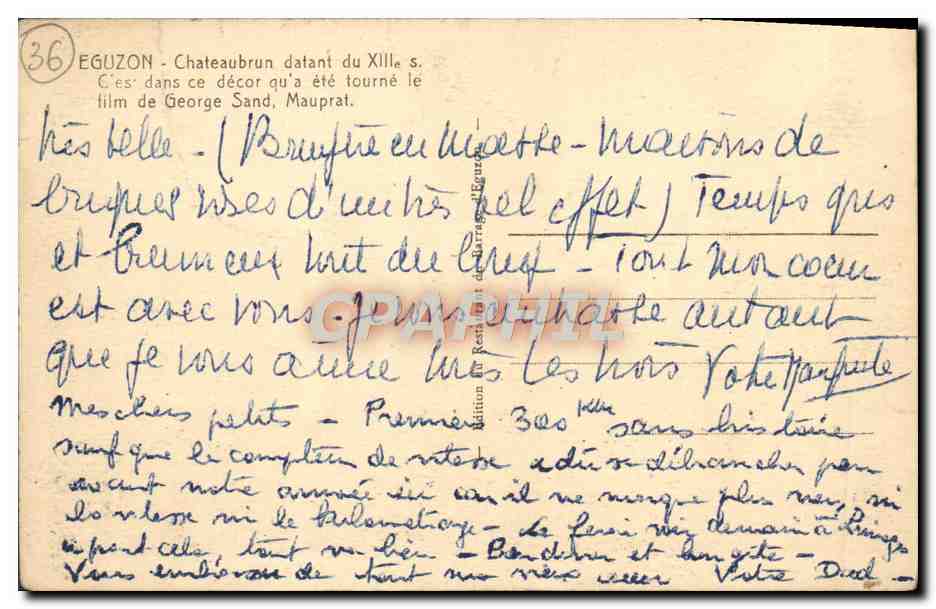 36
EGUZON - Chateaubrun datant du XIIIe s.
C'est dans ce décor qu'a été tourné le
film de George Sand, Mauprat.
très belle - (Bruyère en masse - maisons de
briques roses d'un très bel effet) Temps gris
et brumeux tout du long - Tout mon coeur
est avec vous. Je vous embrasse autant
que je vous aime tous les trois Votre
Mes chers petits - Premiers 300 sans histoire
sauf que le compteur de vitesse a dû se débrancher peu
avant notre arrivée ici car il ne marque plus rien, ni
la vitesse ni le kilométrage - Le ferai voir demain à Limoges
à part cela, tout va bien - Bon et bon gîte -
Vous embrasse de tout mon vieux coeur Votre Dad -
Edition du Restaurant du Barrage d'Eguzon
GRAPHIL